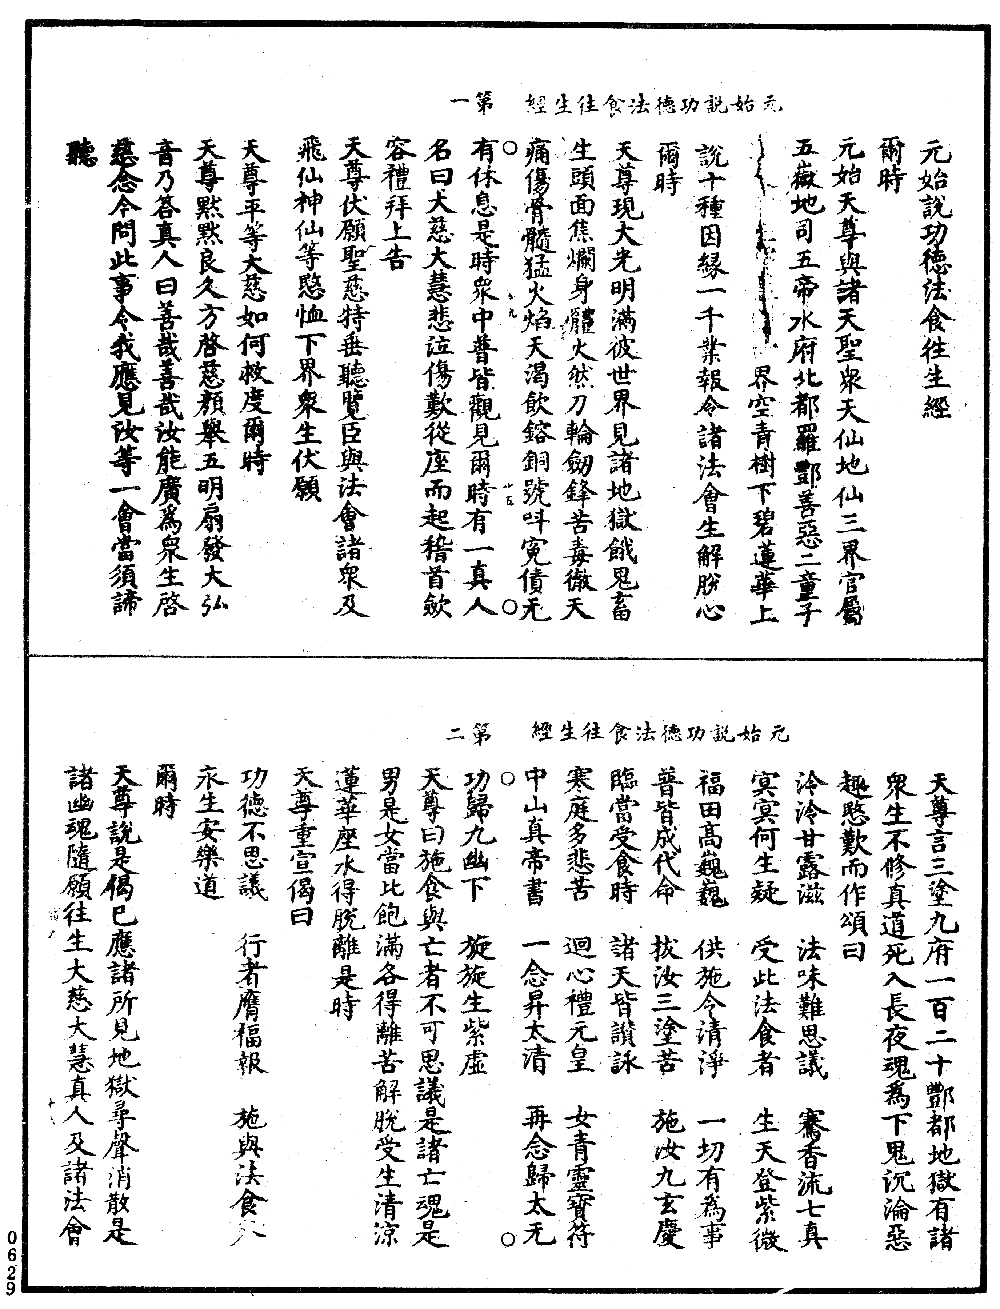 元始說功德法食往生經　第一
元始說功德法食往生經
爾時
元始天尊與諸天聖衆天仙地仙三界官屬
五嶽地司五帝水府北都羅酆善惡二童子
界空青樹下碧蓮華上
說十種因緣一千業報令諸法會生解脫心
爾時
天尊現大光明滿彼世界見諸地獄餓鬼畜
生頭面焦爛身體火然刀輪劒鋒苦毒徹天
痛傷骨髓猛火焰天渴飲鎔銅號呌寃債无
有休息是時衆中普皆觀見爾時有一真人
名曰大慈大慧悲泣傷歎從座而起稽首斂
容禮拜上告
天尊伏願聖慈特垂聽覽臣與法會諸衆及
飛仙神仙等愍恤下界衆生伏願
天尊平等大慈如何救度爾時
天尊黙黙良久方啓慈顏舉五明扇發大弘
音乃答真人曰善哉善哉汝能廣爲衆生啓
慈念今問此事令我應見汝等一會當須諦
聽
元始說功德法食往生經　第二
天尊言三塗九府一百二十酆都地獄有諸
衆生不修真道死入長夜魂爲下鬼沉淪惡
趣愍歎而作頌曰
泠泠甘露滋　法味難思議　騫香流七真
冥冥何生疑　受此法食者　生天登紫微
福田高巍巍　供施令清淨　一切有爲事
普皆成代命　拔汝三塗苦　施汝九玄慶
臨當受食時　諸天皆讃詠
寒庭多悲苦　迴心禮元皇　女青靈寶符
中山真帝書　一念昇太清　再念歸太无
功歸九幽下　旋旋生紫虛
天尊曰施食與亡者不可思議是諸亡魂是
男是女當比飽滿各得離苦解脫受生清涼
蓮華座水得脫離是時
天尊重宣偈曰
功德不思議　行者膺福報　施與法食人
永生安樂道
爾時
天尊說是偈已應諸所見地獄尋聲消散是
諸幽魂隨願往生大慈大慧真人及諸法會
0629